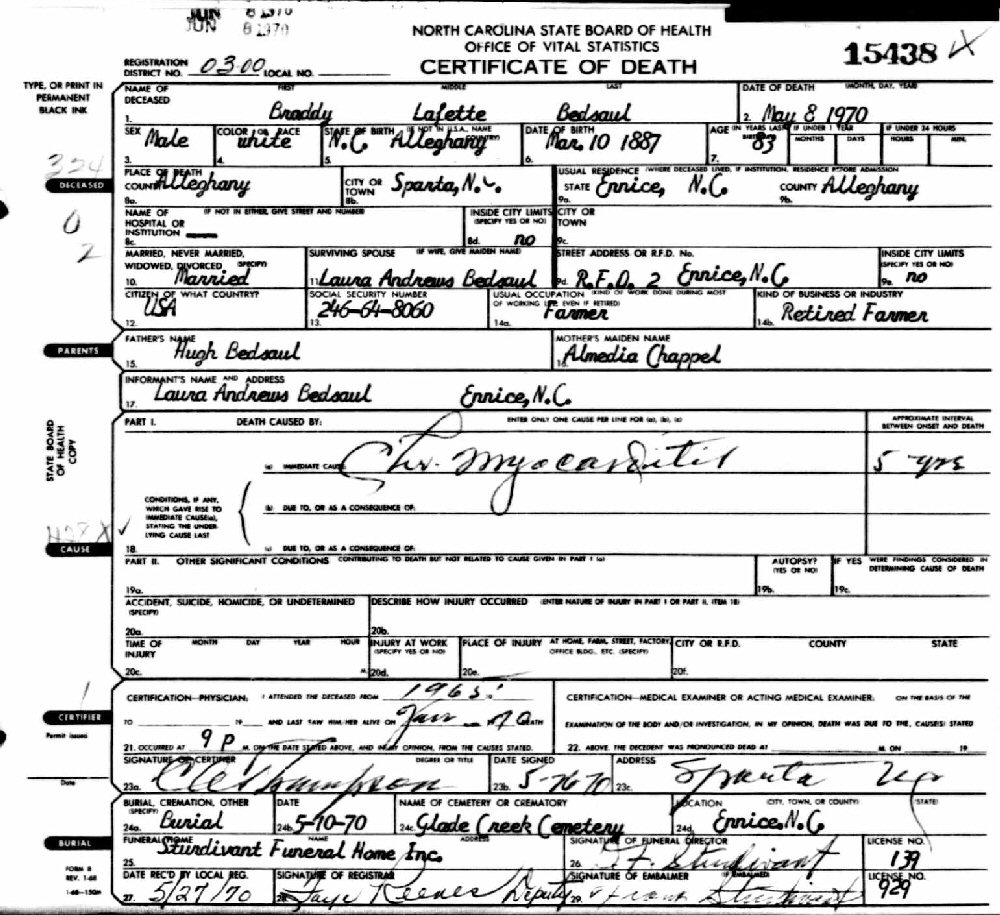 JUN 8 1970
JUN 8 1970
NORTH CAROLINA STATE BOARD OF HEALTH
OFFICE OF VITAL STATISTICS
CERTIFICATE OF DEATH
15438
REGISTRATION DISTRICT NO. 0300 LOCAL NO.
TYPE, OR PRINT IN PERMANENT BLACK INK
NAME OF DECEASED FIRST MIDDLE LAST DATE OF DEATH (MONTH, DAY, YEAR)
1. Braddy Lafette Bedsaul 2. May 8 1970
SEX COLOR OR RACE STATE OF BIRTH (IF NOT IN U.S.A., NAME COUNTRY) DATE OF BIRTH AGE (IN YEARS LAST BIRTHDAY) IF UNDER 1 YEAR MONTHS DAYS IF UNDER 24 HOURS HOURS MIN.
3. Male 4. white 5. N.C. Alleghany 6. Mar. 10 1887 7. 83
324
DECEASED
0
2
PLACE OF DEATH COUNTY Alleghany 8a.
CITY OR TOWN Sparta, N.C. 8b.
USUAL RESIDENCE (WHERE DECEASED LIVED, IF INSTITUTION, RESIDENCE BEFORE ADMISSION)
STATE Ennice, N.C. 9a. COUNTY Alleghany 9b.
NAME OF HOSPITAL OR INSTITUTION (IF NOT IN EITHER, GIVE STREET AND NUMBER) 8c.
INSIDE CITY LIMITS (SPECIFY YES OR NO) 8d. no
CITY OR TOWN 9c.
MARRIED, NEVER MARRIED, WIDOWED, DIVORCED (SPECIFY) 10. Married
SURVIVING SPOUSE (IF WIFE, GIVE MAIDEN NAME) 11. Laura Andrews Bedsaul
STREET ADDRESS OR R.F.D. No. 9d. R.F.D. 2 Ennice, N.C.
INSIDE CITY LIMITS (SPECIFY YES OR NO) 9e. no
CITIZEN OF WHAT COUNTRY? 12. USA
SOCIAL SECURITY NUMBER 13. 246-64-8060
USUAL OCCUPATION (KIND OF WORK DONE DURING MOST OF WORKING LIFE EVEN IF RETIRED) 14a. Farmer
KIND OF BUSINESS OR INDUSTRY 14b. Retired Farmer
PARENTS
FATHER'S NAME 15. Hugh Bedsaul
MOTHER'S MAIDEN NAME 16. Almedia Chappel
INFORMANT'S NAME AND ADDRESS
17. Laura Andrews Bedsaul Ennice, N.C.
STATE BOARD OF HEALTH COPY
PART I. DEATH CAUSED BY: ENTER ONLY ONE CAUSE PER LINE FOR (a), (b), (c) APPROXIMATE INTERVAL BETWEEN ONSET AND DEATH
(a) IMMEDIATE CAUSE Chr. Myocarditis 5 yrs
CONDITIONS, IF ANY, WHICH GAVE RISE TO IMMEDIATE CAUSE(a), STATING THE UNDERLYING CAUSE LAST
(b) DUE TO, OR AS A CONSEQUENCE OF:
CAUSE
18. (c) DUE TO, OR AS A CONSEQUENCE OF:
PART II. OTHER SIGNIFICANT CONDITIONS CONTRIBUTING TO DEATH BUT NOT RELATED TO CAUSE GIVEN IN PART I (a)
19a.
AUTOPSY? (YES OR NO) 19b.
IF YES WERE FINDINGS CONSIDERED IN DETERMINING CAUSE OF DEATH 19c.
ACCIDENT, SUICIDE, HOMICIDE, OR UNDETERMINED (SPECIFY) 20a.
DESCRIBE HOW INJURY OCCURRED (ENTER NATURE OF INJURY IN PART I OR PART II, ITEM 18) 20b.
TIME OF INJURY MONTH DAY YEAR HOUR 20c. M.
INJURY AT WORK (SPECIFY YES OR NO) 20d.
PLACE OF INJURY AT HOME, FARM, STREET, FACTORY, OFFICE BLDG., ETC. (SPECIFY) 20e.
CITY OR R.F.D. COUNTY STATE 20f.
CERTIFIER
Permit issued
Date
CERTIFICATION—PHYSICIAN: I ATTENDED THE DECEASED FROM 1965
TO 19 AND LAST SAW HIM/HER ALIVE ON Jan - 70 DEATH
21. OCCURRED AT 9 P M. ON THE DATE STATED ABOVE, AND IN MY OPINION, FROM THE CAUSES STATED.
CERTIFICATION—MEDICAL EXAMINER OR ACTING MEDICAL EXAMINER: ON THE BASIS OF THE
EXAMINATION OF THE BODY AND/OR INVESTIGATION, IN MY OPINION, DEATH WAS DUE TO THE, CAUSE(S) STATED
22. ABOVE. THE DECEDENT WAS PRONOUNCED DEAD AT M. ON 19
SIGNATURE OF CERTIFIER DEGREE OR TITLE DATE SIGNED ADDRESS
23a. Thompson 23b. 23c. Sparta
BURIAL, CREMATION, OTHER (SPECIFY) 24a. Burial
DATE 24b. 5-10-70
NAME OF CEMETERY OR CREMATORY 24c. Glade Creek Cemetery
LOCATION (CITY, TOWN, OR COUNTY) (STATE) 24d. Ennice, N.C.
BURIAL
FUNERAL HOME NAME ADDRESS 25. Sturdivant Funeral Home Inc.
SIGNATURE OF FUNERAL DIRECTOR 26. Sturdivant
LICENSE NO. 139
FORM 8 REV. 1-68
1-68—150M
DATE REC'D BY LOCAL REG. 27. 5/27/70
SIGNATURE OF REGISTRAR 28. Faye Reeves Deputy
SIGNATURE OF EMBALMER (IF EMBALMED) 29. Frank Sturdivant
LICENSE NO. 929